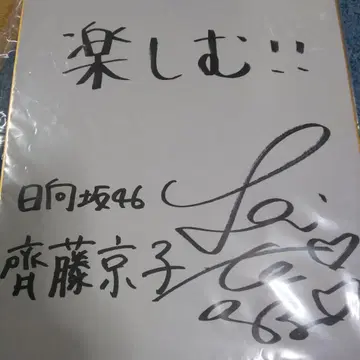 楽しむ!!
日向坂46
齊藤京子